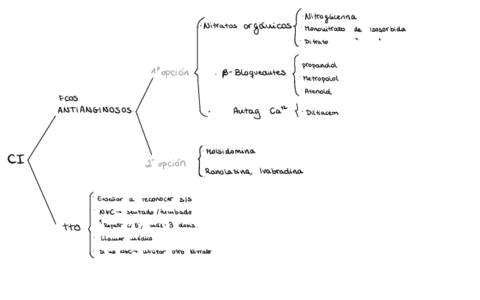 CI
FCOS
ANTIANGINOSOS
1ª opción
· Nitratos orgánicos
· Nitroglicerina
· Mononitrato de isosorbida
· Ditrato " "
· β-Bloqueantes
propanolol
Metropolol
Atenolol
· Antag Ca⁺²
· Diltiacem
2ª opción
Molsidomina
Ranolazina, Ivabradina
TTO
· Enseñar a reconocer s/s
· NTG → sentado/tumbado
Repetir c/5', máx: 3 dosis.
· Llamar médico
· Si no NTG → utilizar otro Nitrato